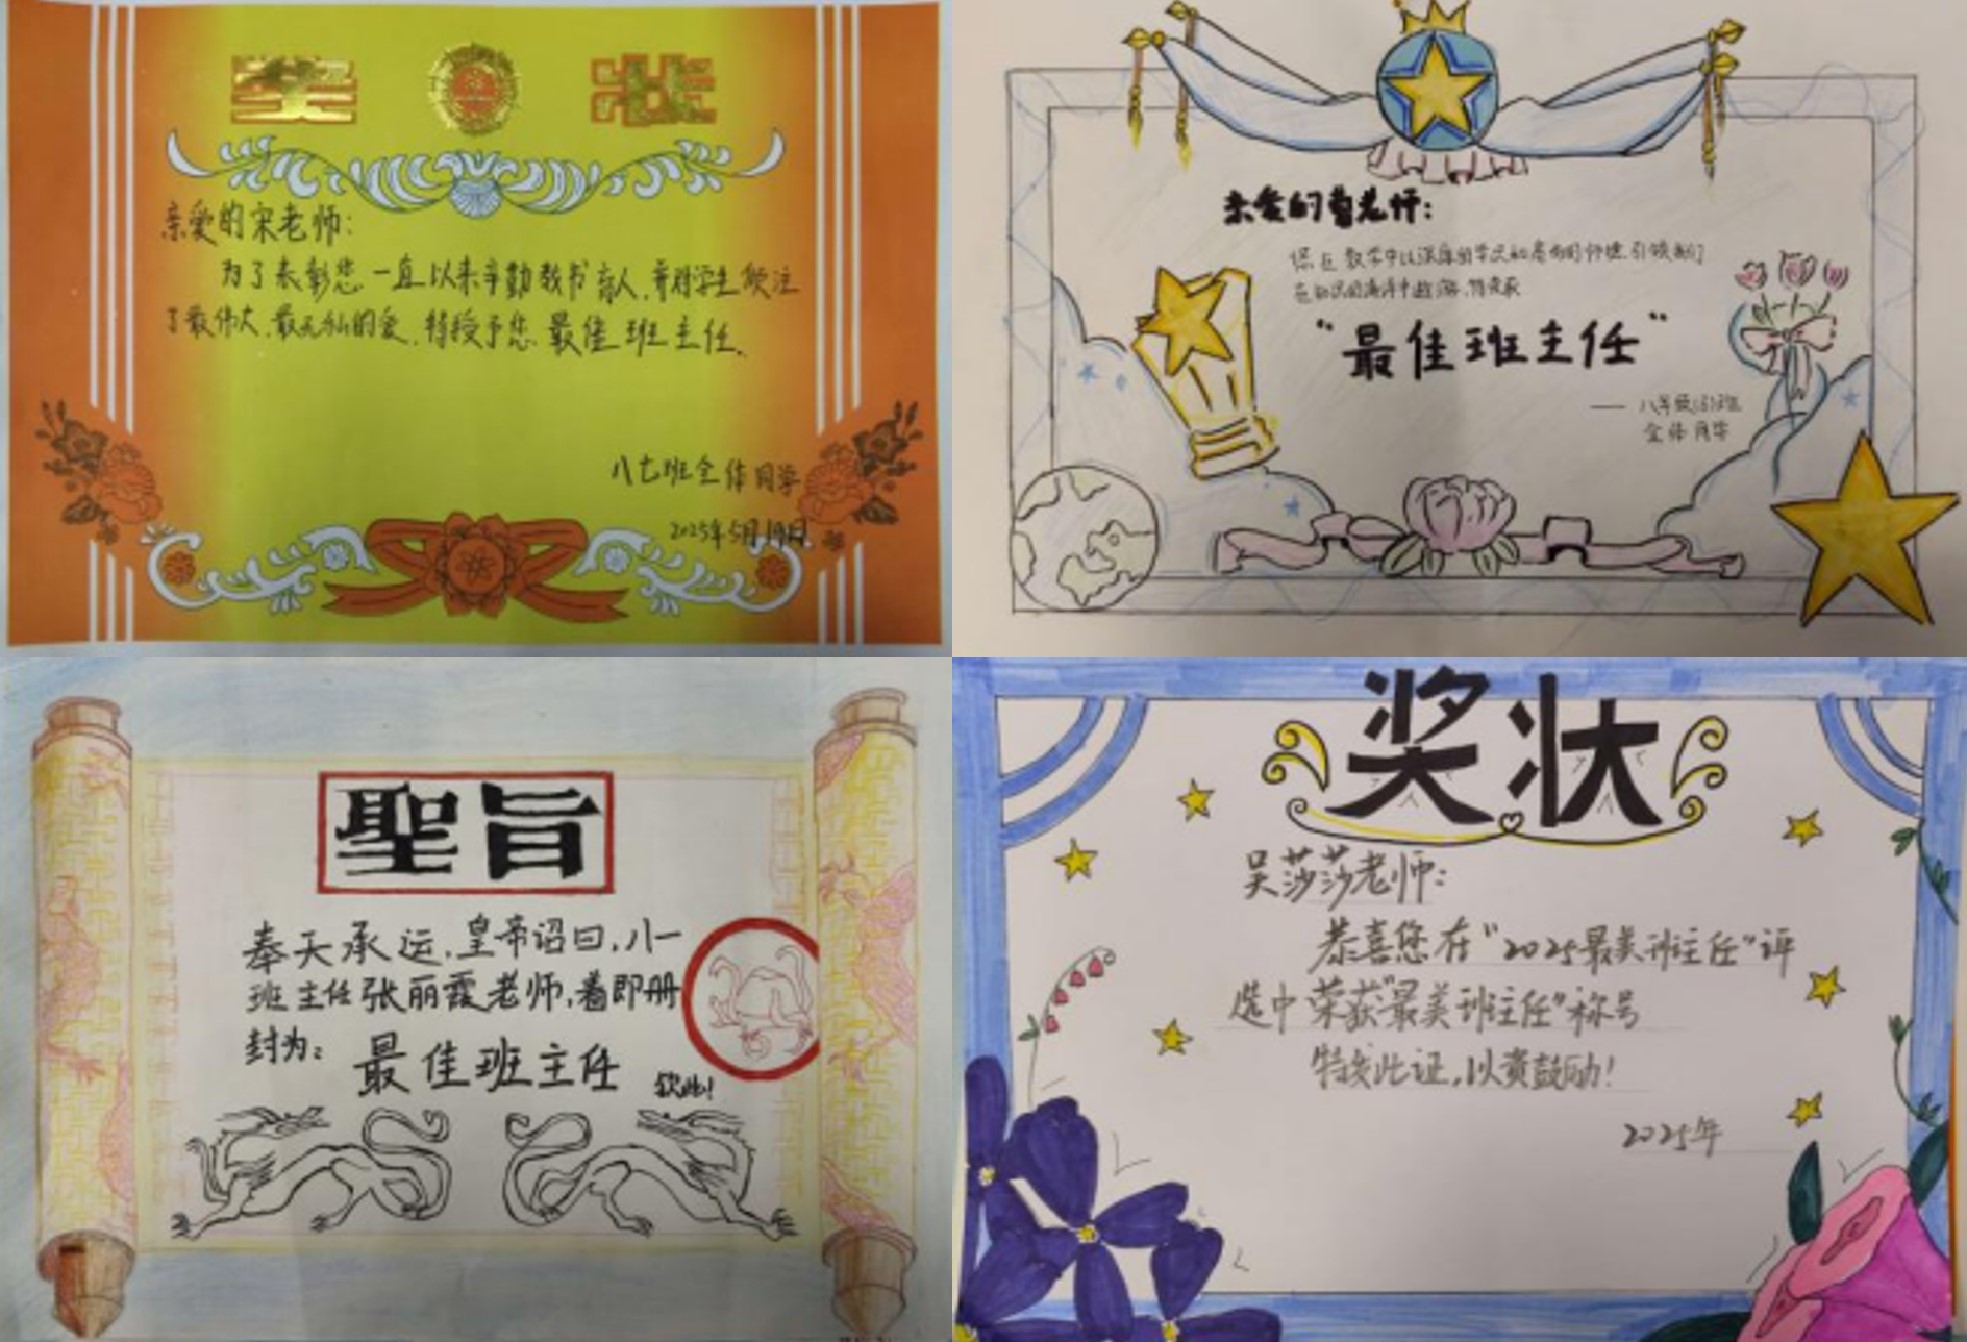 奖 状
亲爱的宋老师:
为了表彰您一直以来辛勤教书育人,并对学生倾注
了最伟大、最无私的爱,特授予您 最佳班主任。
八七班全体同学
2025年5月19日
亲爱的曹老师:
您在教学中以深厚的学识和高尚的师德,引领我们
在知识的海洋中遨游,特授予
“最佳班主任”
—— 八年级
全体同学
聖旨
奉天承运,皇帝诏曰,八一
班主任张丽霞老师,着即册
封为:
最佳班主任
钦此!
奖状
吴莎莎老师:
恭喜您在“2025最美班主任”评
选中荣获“最美班主任”称号
特发此证,以资鼓励!
2025年